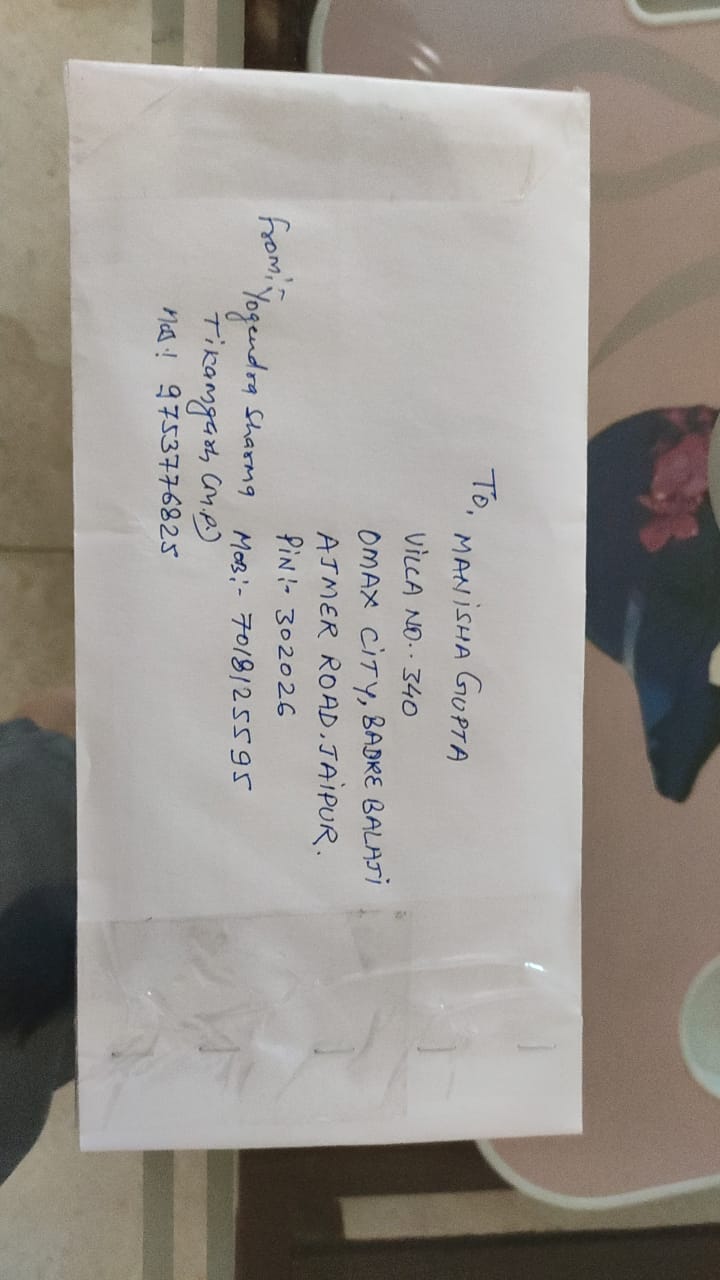 To, MANISHA GUPTA
VILLA NO.. 340
OMAX CITY, BADRE BALAJI
AJMER ROAD, JAIPUR.
PIN:- 302026
MOB:- 7018125595
From:- Yogendra Sharma
Tikamgarh (M.P.)
MOB: 9753776825